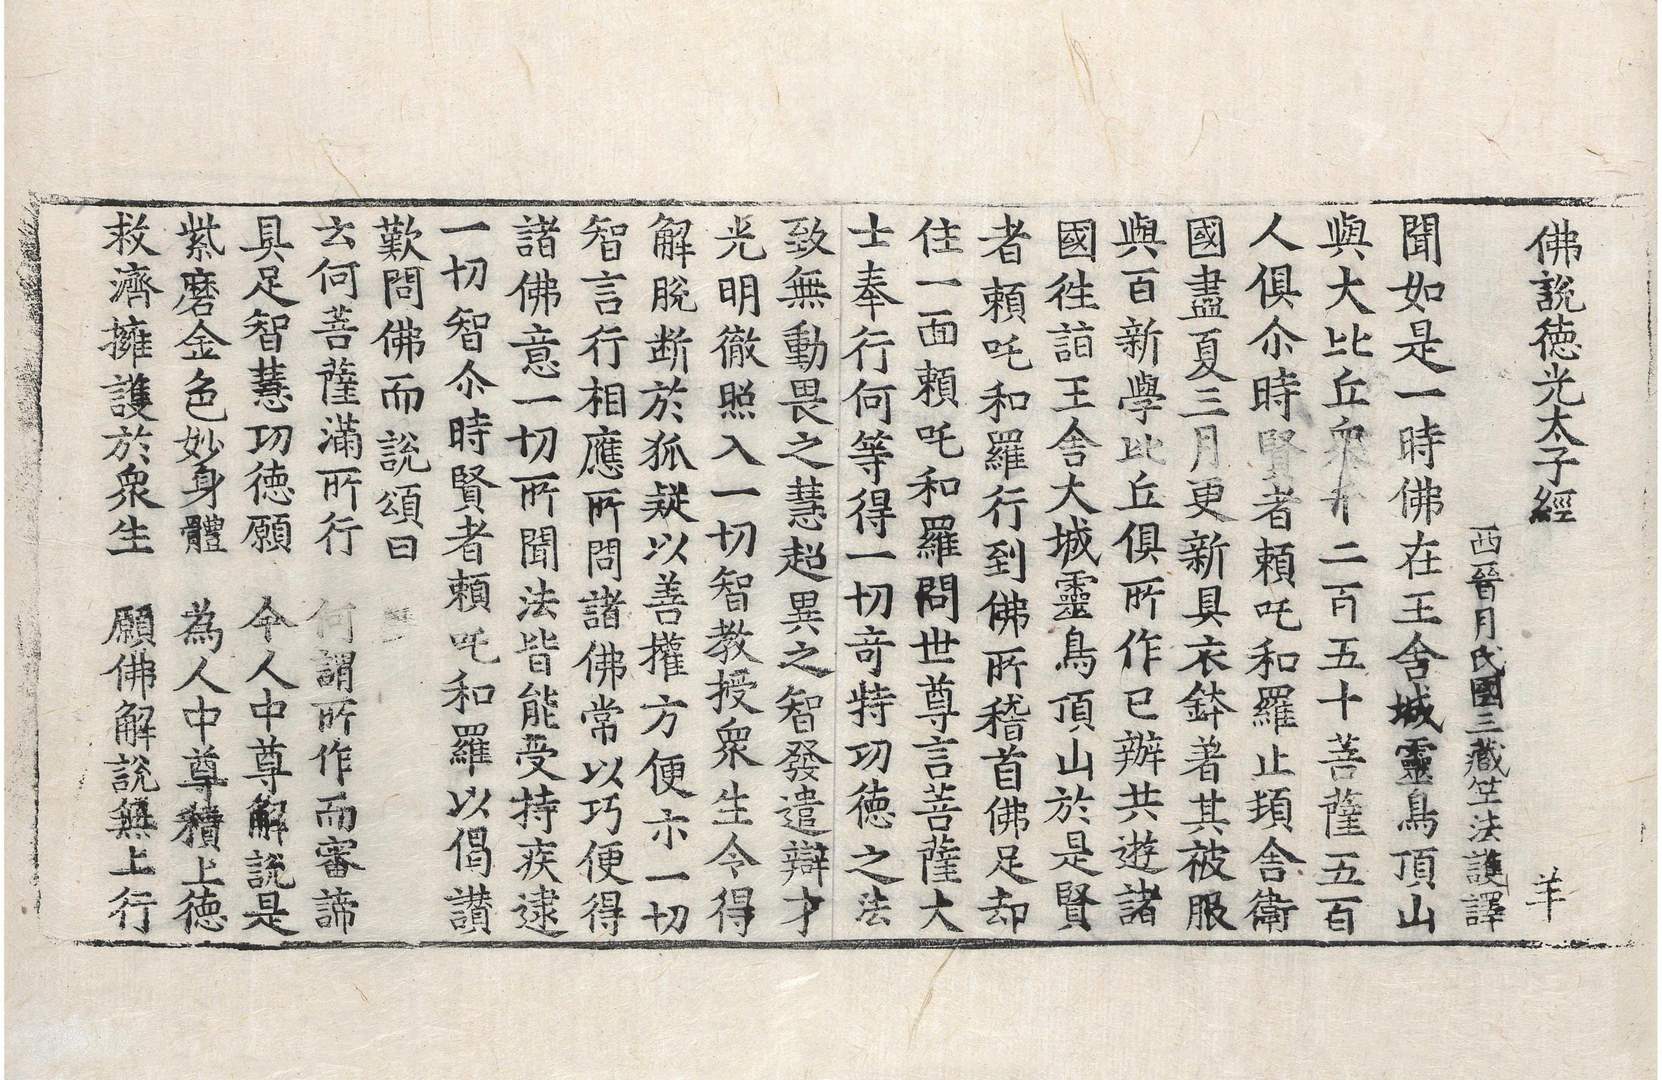 佛說德光太子經 羊
西晉月氏國三藏竺法護譯
聞如是一時佛在王舍城靈鳥頂山
與大比丘衆千二百五十菩薩五百
人俱尒時賢者賴吒和羅止頊舍衛
國盡夏三月更新具衣鉢著其被服
與百新學比丘俱所作已辦共遊諸
國徃詣王舍大城靈鳥頂山於是賢
者賴吒和羅行到佛所稽首佛足却
住一面賴吒和羅問世尊言菩薩大
士奉行何等得一切奇特功德之法
致無動畏之慧超異之智發遣辯才
光明徹照入一切智教授衆生令得
解脫斷於狐疑以善權方便示一切
智言行相應所問諸佛常以巧便得
諸佛意一切所聞法皆能受持疾逮
一切智尒時賢者賴吒和羅以偈讃
歎問佛而說頌曰
云何菩薩滿所行 何謂所作而審諦
具足智慧功德願 令人中尊解說是
紫磨金色妙身體 為人中尊積上德
救濟擁護於衆生 願佛解說無上行